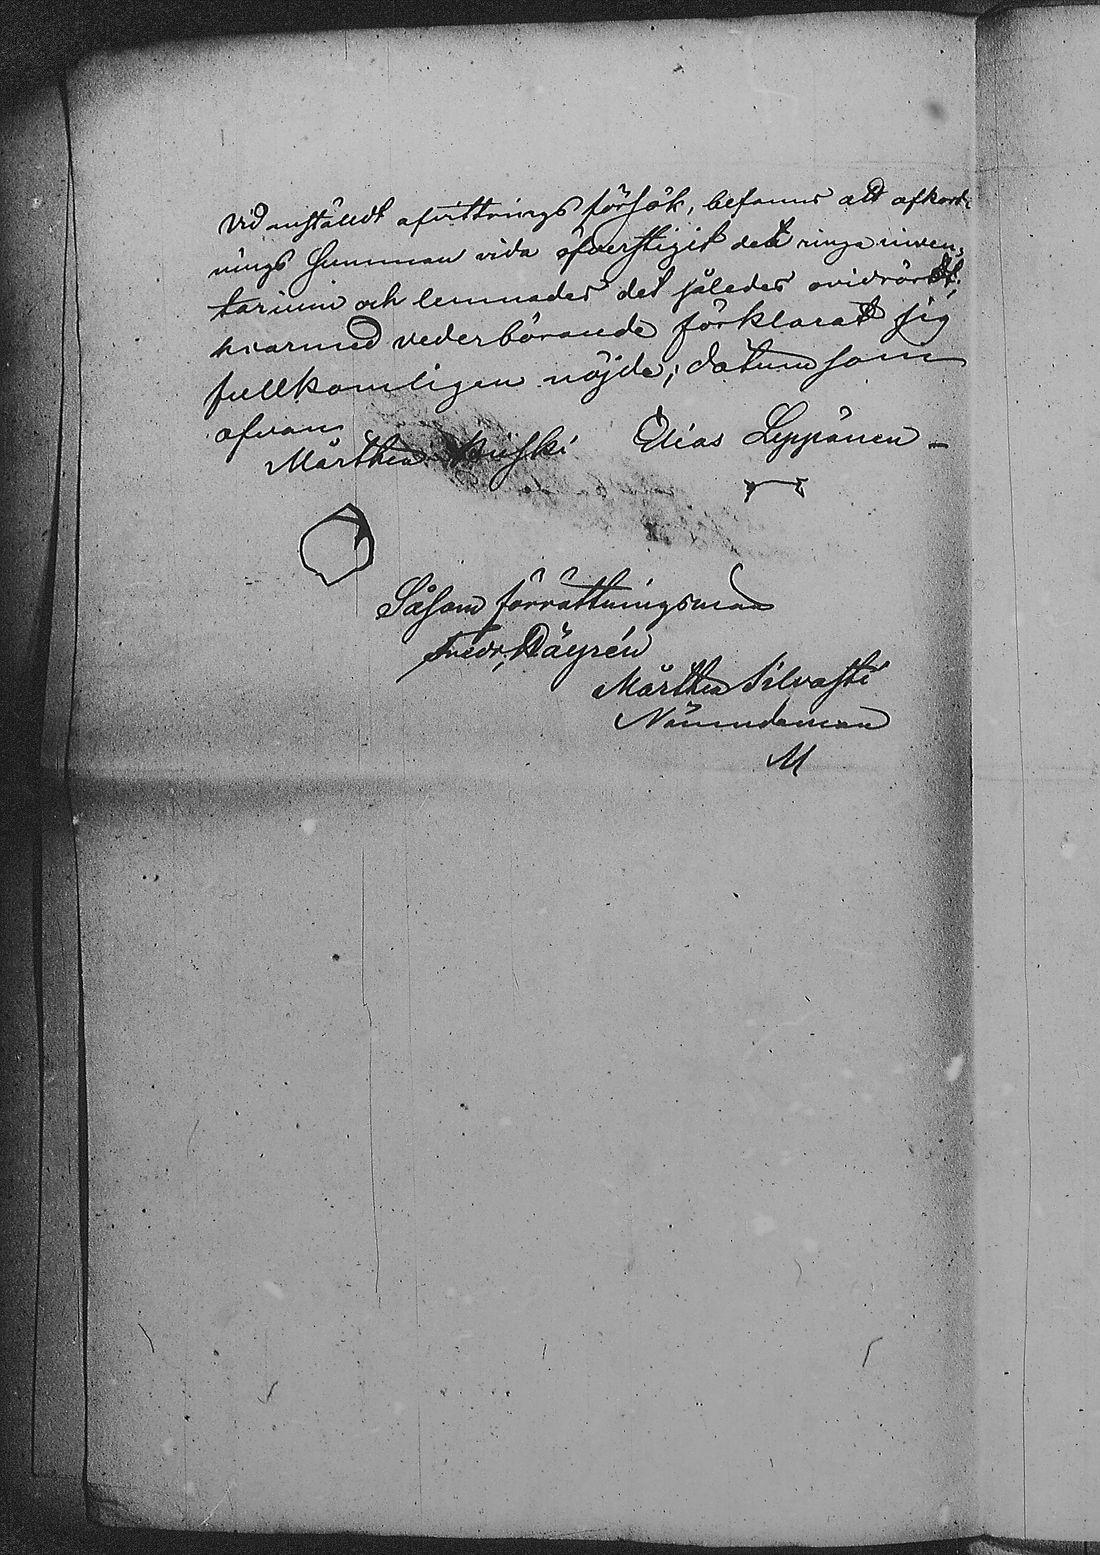 Vid anstäldt afvittrings försök, befanns att afkort-
nings summan vida öfverstigit det ringa inven-
tarium och lemnades det således ovidrördt,
hvarmed vederbörande förklarat sig
fullkomligen nöjde; datum som
ofvan
Mårthen Elias Leppänen
Såsom förrättningsman
Fredr.
Mårthen Silvasti
Nämndeman
M